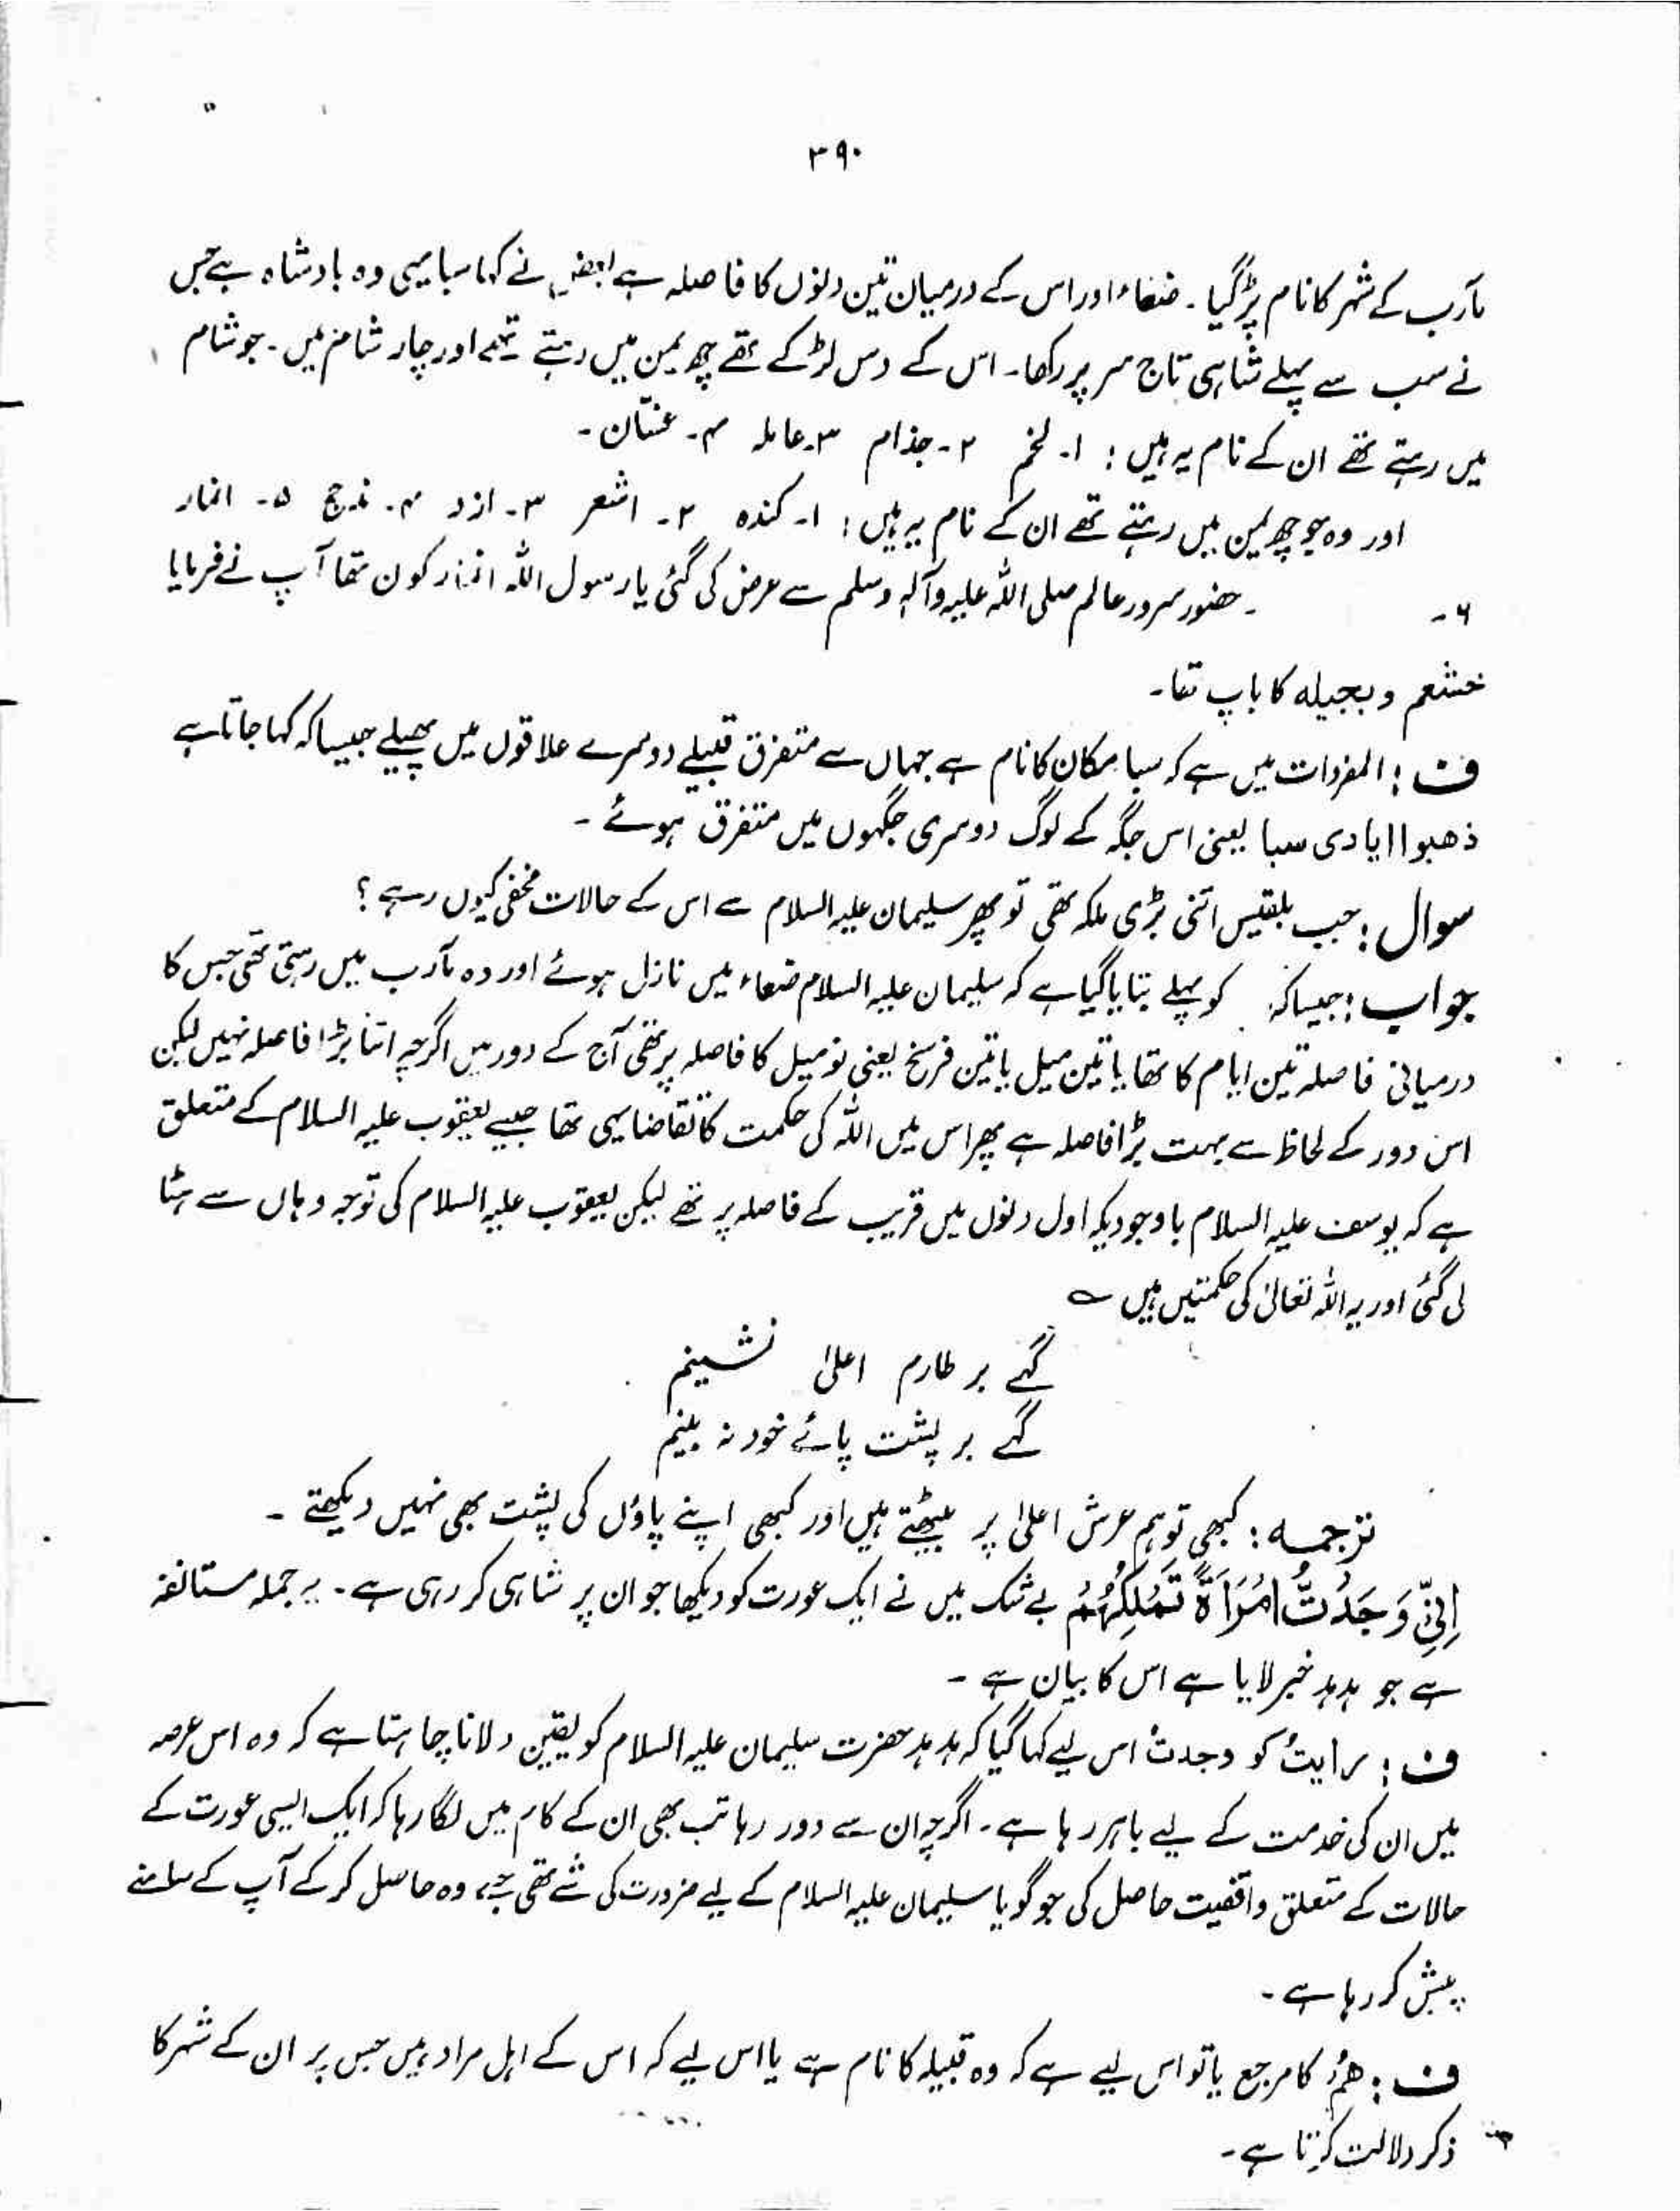 ۳۹۰
مآرب کے شہر کا نام پڑ گیا۔ صنعاء اور اس کے درمیان تین دنوں کا فاصلہ ہے بعض نے کہا سبا یہی وہ بادشاہ ہے جس
نے سب سے پہلے شاہی تاج سر پر رکھا۔ اس کے دس لڑکے تھے چھ یمن میں رہتے تھے اور چار شام میں۔ جو شام
میں رہتے تھے ان کے نام یہ ہیں: ۱۔ لخم ۲۔ جذام ۳۔ عاملہ ۴۔ غسّان۔
اور وہ جو چھ یمن میں رہتے تھے ان کے نام یہ ہیں: ۱۔ کندہ ۲۔ اشعر ۳۔ ازد ۴۔ مذحج ۵۔ انمار
۶۔ ۔ حضور سرور عالم صلی اللہ علیہ وآلہ وسلم سے عرض کی گئی یا رسول اللہ انمار کون تھا آپ نے فرمایا
خشعم و بجیلہ کا باپ تھا۔
ف: المفردات میں ہے کہ سبا مکان کا نام ہے جہاں سے متفرق قبیلے دوسرے علاقوں میں پھیلے جیسا کہ کہا جاتا ہے
ذھبوا ایادی سبا یعنی اس جگہ کے لوگ دوسری جگہوں میں متفرق ہوئے ۔
سوال: جب بلقیس اتنی بڑی ملکہ تھی تو پھر سلیمان علیہ السلام سے اس کے حالات مخفی کیوں رہے؟
جواب: جیسا کہ کو پہلے بتایا گیا ہے کہ سلیمان علیہ السلام صنعاء میں نازل ہوئے اور وہ مآرب میں رہتی تھی جس کا
درمیانی فاصلہ تین ایام کا تھا یا تین میل یا تین فرسخ یعنی نو میل کا فاصلہ پر تھی آج کے دور میں اگرچہ اتنا بڑا فاصلہ نہیں لیکن
اس دور کے لحاظ سے بہت بڑا فاصلہ ہے پھر اس میں اللہ کی حکمت کا تقاضا یہی تھا جیسے یعقوب علیہ السلام کے متعلق
ہے کہ یوسف علیہ السلام باوجودیکہ اول دنوں میں قریب کے فاصلہ پر تھے لیکن یعقوب علیہ السلام کی توجہ وہاں سے ہٹا
لی گئی اور یہ اللہ تعالیٰ کی حکمتیں ہیں ؎
گہے بر طارم اعلیٰ نشینم
گہے بر پشت پائے خود نہ بینم
ترجمہ: کبھی تو ہم عرش اعلیٰ پر بیٹھتے ہیں اور کبھی اپنے پاؤں کی پشت بھی نہیں دیکھتے ۔
اِنِّیْ وَجَدْتُّ امْرَاَۃً تَمْلِکُہُمْ بے شک میں نے ایک عورت کو دیکھا جو ان پر شاہی کر رہی ہے۔ یہ جملہ مستانفہ
ہے جو ہدہد خبر لایا ہے اس کا بیان ہے ۔
ف: رایتُ کو وجدتُ اس لیے کہا گیا کہ ہدہد حضرت سلیمان علیہ السلام کو یقین دلانا چاہتا ہے کہ وہ اس عرصہ
میں ان کی خدمت کے لیے باہر رہا ہے۔ اگرچہ ان سے دور رہا تب بھی ان کے کام میں لگا رہا کہ ایک ایسی عورت کے
حالات کے متعلق واقفیت حاصل کی جو گویا سلیمان علیہ السلام کے لیے ضرورت کی شے تھی جسے وہ حاصل کر کے آپ کے سامنے
پیش کر رہا ہے۔
ف: ھُمْ کا مرجع یا تو اس لیے ہے کہ وہ قبیلہ کا نام ہے یا اس لیے کہ اس کے اہل مراد ہیں جس پر ان کے شہر کا
ذکر دلالت کرتا ہے۔